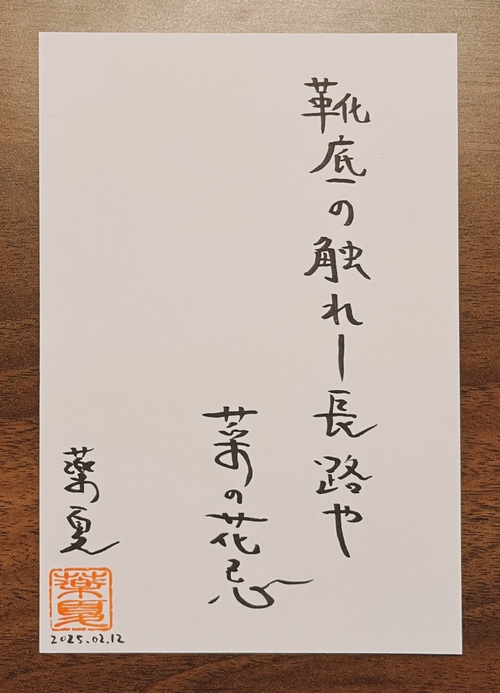 靴底の触れし長路や
菜の花忌
薬夏
薬夏
2025.02.12